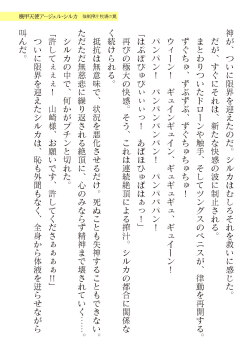 機甲天使アージェルシルカ
神が、ついに限界を迎えたのだ。シルカはむしろそれを救いに感じた。
だが、すぐにそれは、新たな快感の波に制される。
まとわりついたドローンや触手、そしてゾンダスのペニスが、律動を再開する。
ずぐちゅ、ずぷずぷ、ずぐちゅちゅちゅ!
ウィーン! ギュインギュイン、ギュギュギュ、ギュイーン!
パンパンパン! パンパンパン! パンパンパン!
「はぶぼひゅばばっ! あぼぼひゅぼはぁっ!」
再びの極大の快感。そう、これは連続絶頂による搾汁。シルカの都合に関係な
く続けられる。
抵抗は無意味で、状況を悪化させるだけ。死ぬことも失神することもできない。
ただただ無慈悲に繰り返される絶頂に、心のみならず精神まで壊されていく……。
シルカの中で、何かがプチンと切れた。
「許してぇぇぇ! 山崎様、お願いです、許してくださぁぁぁぁ!!」
ついに限界を迎えたシルカは、恥も外聞もなく、全身から体液を迸らせながら
叫んだ。